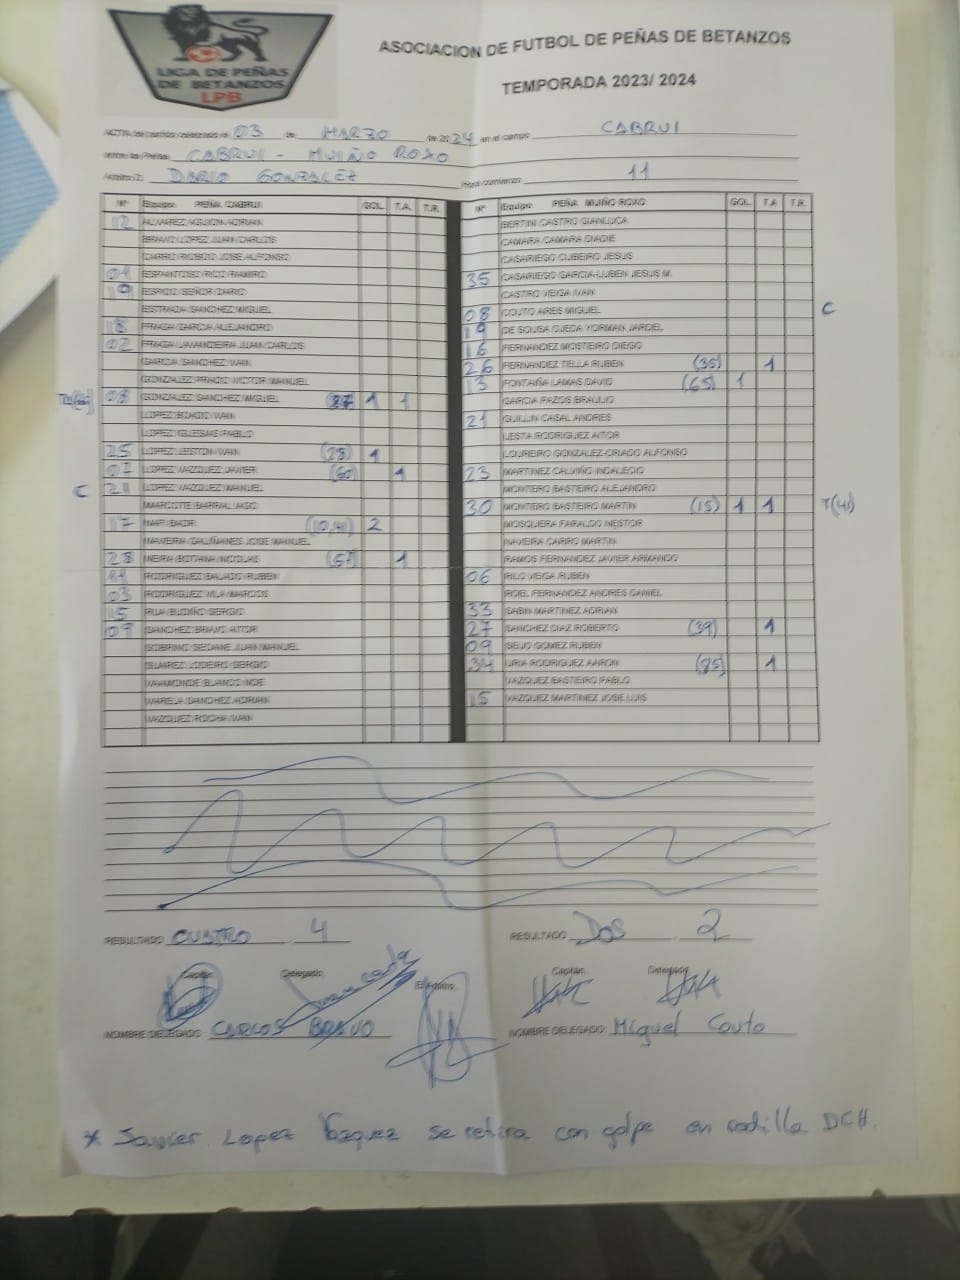 LIGA DE PEÑAS
DE BETANZOS
LPB
ASOCIACION DE FUTBOL DE PEÑAS DE BETANZOS
TEMPORADA 2023/ 2024
ACTA del partido celebrado el 03 de MARZO de 2024 en el campo CABRUI
entre las Peñas CABRUI - MUIÑO ROXO
DARIO GONZALEZ
Hora comienzo 11
Nº Equipo: PEÑA CABRUI GOL T.A. T.R.
12 ALVAREZ AGUION ADRIAN
BRAVO LOPEZ JUAN CARLOS
CARRO RIOBOO JOSE ALFONSO
04 ESPANTOSO RICO RAMIRO
19 ESPIDO SEÑOR DARIO
ESTRADA SANCHEZ MIGUEL
18 FRAGA GARCIA ALEJANDRO
02 FRAGA LAVANDEIRA JUAN CARLOS
GARCIA SANCHEZ IVAN
GONZALEZ PRADO VICTOR MANUEL
08 GONZALEZ SANCHEZ MIGUEL 1 1
LOPEZ IVAN
LOPEZ IGLESIAS PABLO
25 LOPEZ IVAN (28) 1
07 LOPEZ VAZQUEZ JAVIER (60) 1
C 21 LOPEZ VAZQUEZ MANUEL
MARCOTE BARRAL IAGO
17 BADR (10,41) 2
NAVEIRA GALIÑANES JOSE MANUEL
28 NEIRA BOTANA NICOLAS 1
11 RODRIGUEZ BALADO RUBEN
03 RODRIGUEZ VILA MARCOS
15 RUA SERGIO
09 SANCHEZ BRAVO AITOR
SOBRINO SEOANE JUAN MANUEL
SUAREZ LODEIRO SERGIO
VAAMONDE BLANCO
VARELA SANCHEZ ADRIAN
VAZQUEZ ROCHA IVAN
Nº Equipo: PEÑA MUIÑO ROXO GOL T.A T.R.
BERTIN CASTRO GIANLUCA
CAMARA CAMARA DIADIE
CASARIEGO CUBEIRO JESUS
35 CASARIEGO GARCIA-LUBEN JESUS M.
CASTRO VEIGA IVAN
08 COUTO ARES MIGUEL C
19 DE SOUSA OJEDA YORMAN JARDEL
16 FERNANDEZ MOSTEIRO DIEGO
26 FERNANDEZ TELLA RUBEN (35) 1
13 FONTAIÑA LAMAS DAVID (65) 1
GARCIA PAZOS BRAULIO
21 GUILLIN CASAL ANDRES
LESTA RODRIGUEZ AITOR
LOUREIRO GONZALEZ-CRIADO ALFONSO
23 MARTINEZ CALVIÑO INDALECIO
MONTERO BASTEIRO ALEJANDRO
30 MONTERO BASTEIRO MARTIN (15) 1 1 T(41)
MOSQUERA FARALDO NESTOR
NAVEIRA CARRO MARTIN
RAMOS FERNANDEZ JAVIER ARMANDO
06 RILO VEIGA RUBEN
ROEL FERNANDEZ ANDRES DANIEL
33 SABIN MARTINEZ ADRIAN
27 SANCHEZ DIAZ ROBERTO (39) 1
09 SEIJO GOMEZ RUBEN
34 URIA RODRIGUEZ AARON (85) 1
VAZQUEZ BASTEIRO PABLO
15 VAZQUEZ MARTINEZ JOSE LUIS
RESULTADO CUATRO 4
RESULTADO DOS 2
Capitán Delegado El Árbitro
Capitán Delegado
NOMBRE DELEGADO: CARLOS BRAVO
NOMBRE DELEGADO: Miguel Couto
* Javier Lopez Vazquez se retira con golpe en rodilla DCH.